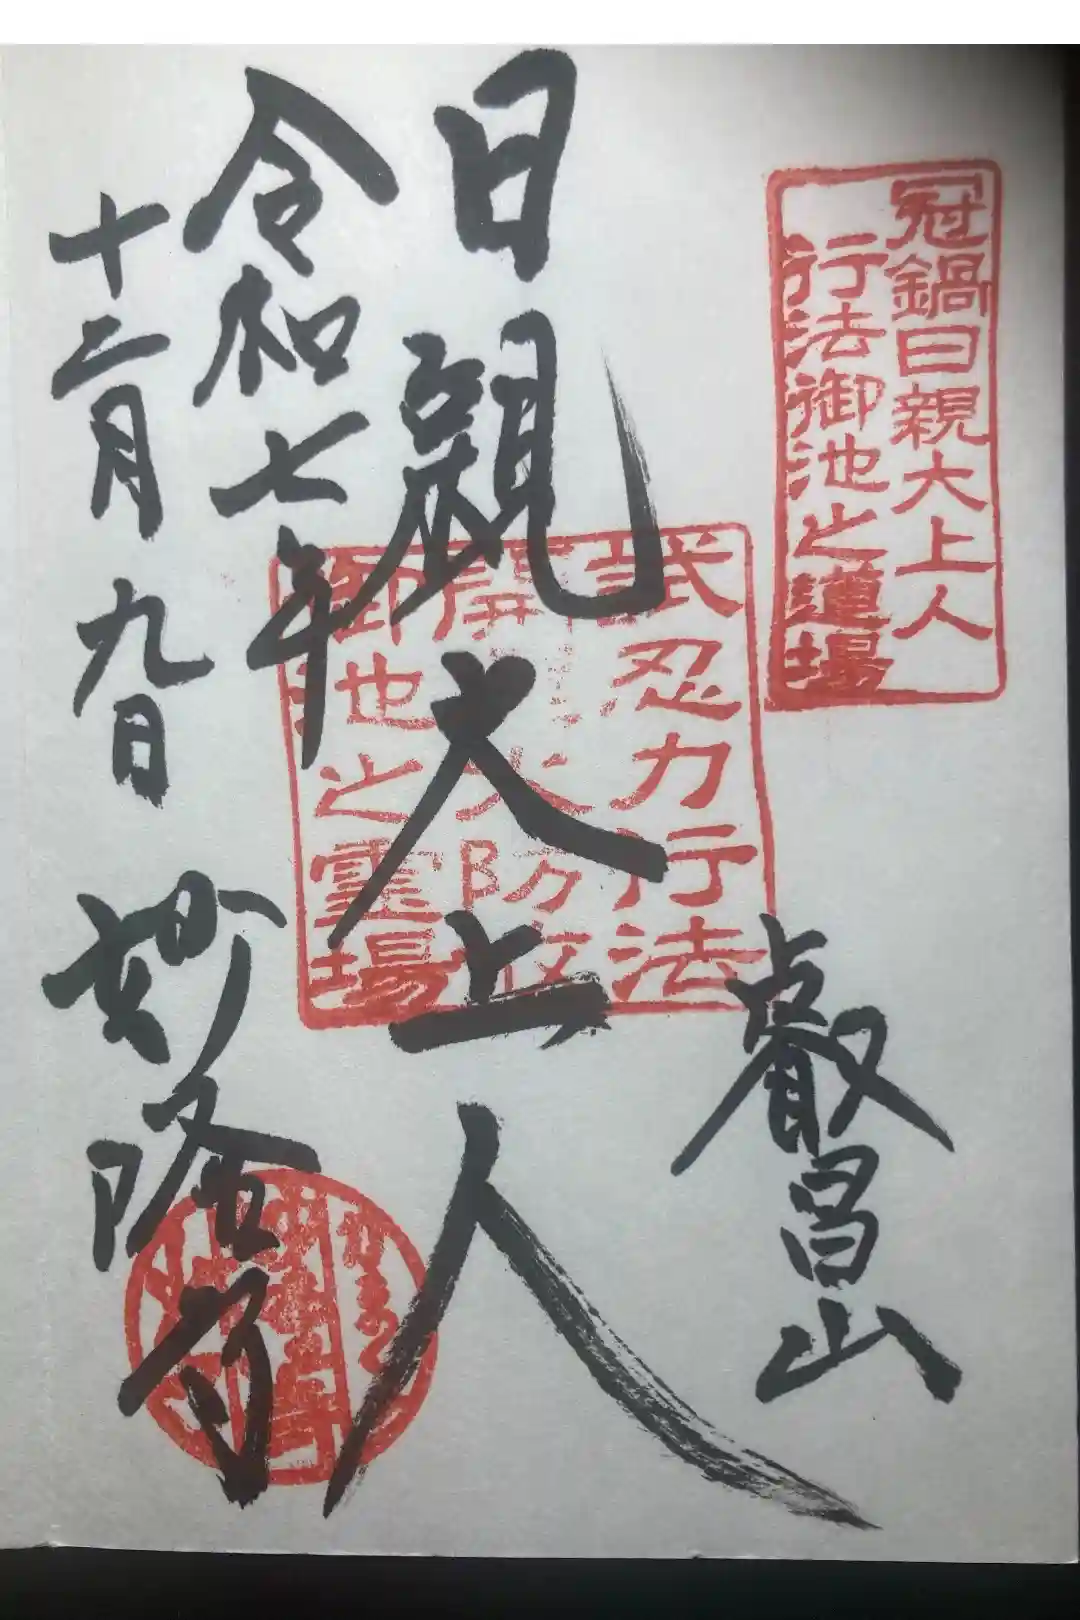 冠鍋日親大上人
行法御池之道場
叡昌山
試忍力行法
御池之霊場
日親大上人
令和七年
十二月九日
妙隆寺